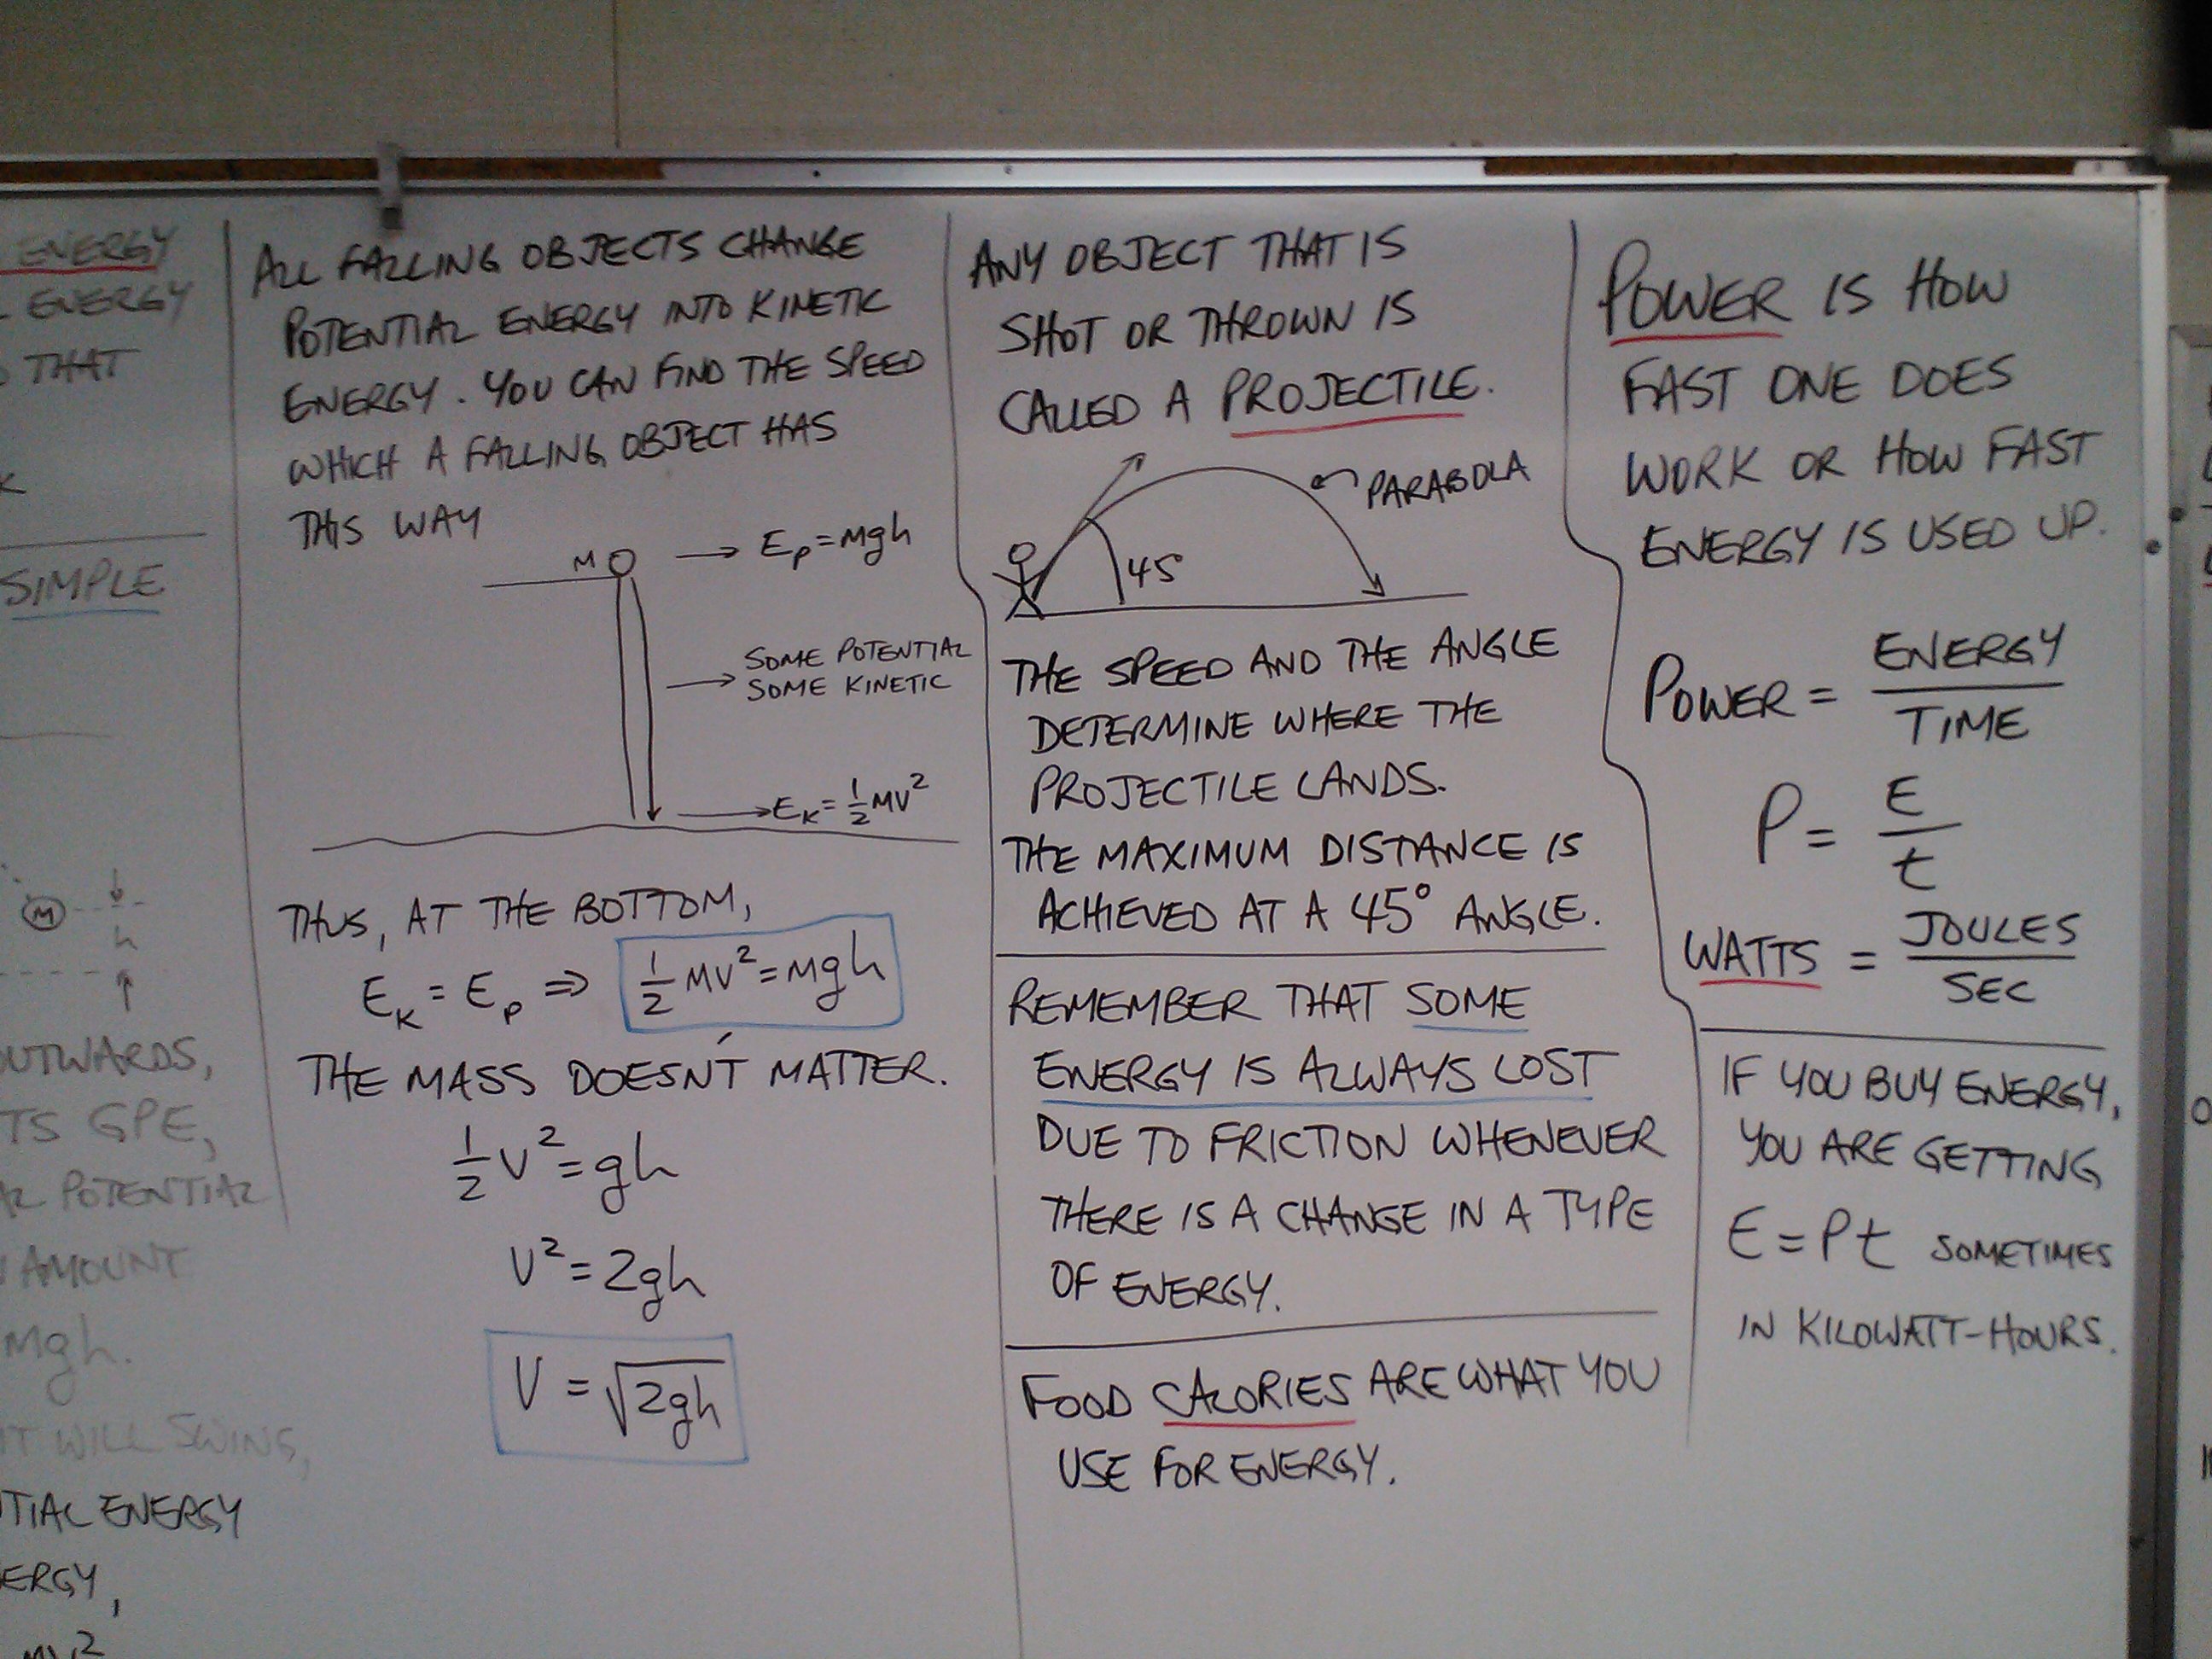 ENERGY
ENERGY
THAT
SIMPLE
M
h
OUTWARDS,
TS GPE,
AL POTENTIAL
AMOUNT
Mgh.
IT WILL SWING,
TIAL ENERGY
ERGY,
MV²
ALL FALLING OBJECTS CHANGE
POTENTIAL ENERGY INTO KINETIC
ENERGY. YOU CAN FIND THE SPEED
WHICH A FALLING OBJECT HAS
THIS WAY
M → Ep = Mgh
→ SOME POTENTIAL
SOME KINETIC
→ EK = 1/2 MV²
THUS, AT THE BOTTOM,
EK = Ep ⇒ 1/2 MV² = Mgh
THE MASS DOESN'T MATTER.
1/2 V² = gh
V² = 2gh
V = √2gh
ANY OBJECT THAT IS
SHOT OR THROWN IS
CALLED A PROJECTILE.
PARABOLA
45°
THE SPEED AND THE ANGLE
DETERMINE WHERE THE
PROJECTILE LANDS.
THE MAXIMUM DISTANCE IS
ACHIEVED AT A 45° ANGLE.
REMEMBER THAT SOME
ENERGY IS ALWAYS LOST
DUE TO FRICTION WHENEVER
THERE IS A CHANGE IN A TYPE
OF ENERGY.
FOOD CALORIES ARE WHAT YOU
USE FOR ENERGY.
POWER IS HOW
FAST ONE DOES
WORK OR HOW FAST
ENERGY IS USED UP.
POWER = ENERGY / TIME
P = E / t
WATTS = JOULES / SEC
IF YOU BUY ENERGY,
YOU ARE GETTING
E = Pt SOMETIMES
IN KILOWATT-HOURS.